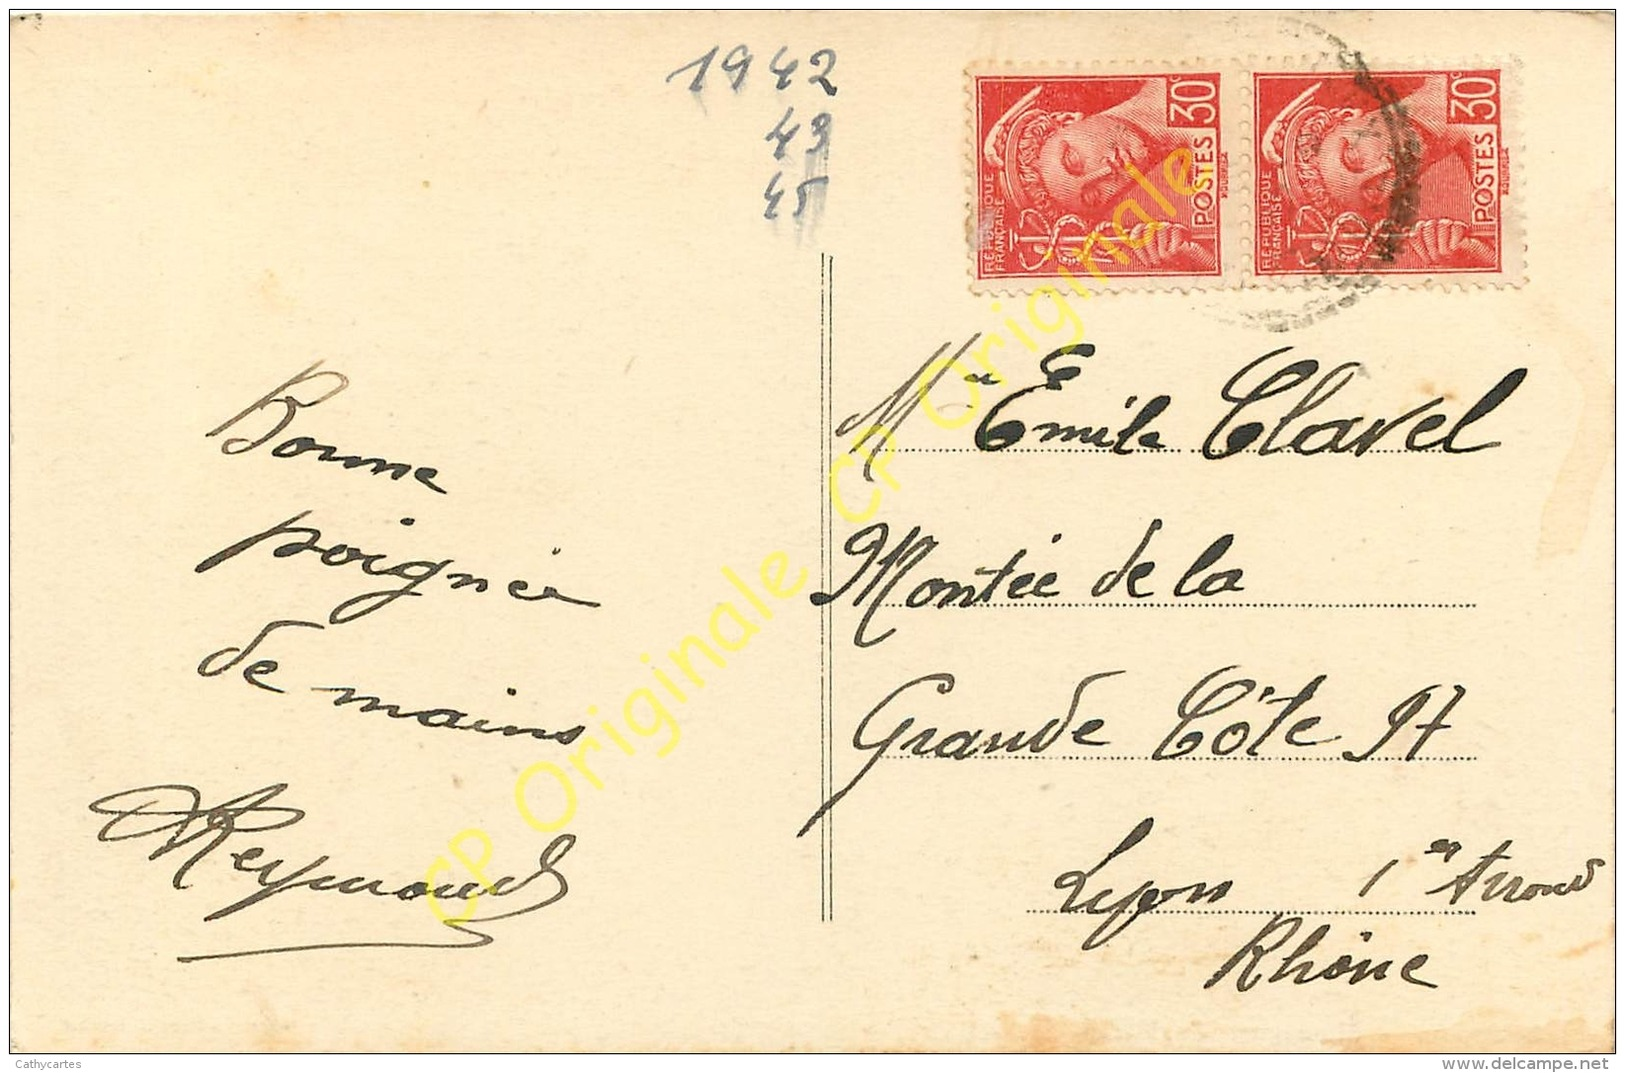 1942
43
45
30c
POSTES
RÉPUBLIQUE
FRANÇAISE
30c
POSTES
RÉPUBLIQUE
FRANÇAISE
Bonne
poignée
de mains
Reymond
Emile Clavel
Montée de la
Grande Côte 97
Lyon 1er Arrond
Rhône
CP Originale CP Originale CP Originale
Cathycartes
www.delcampe.net